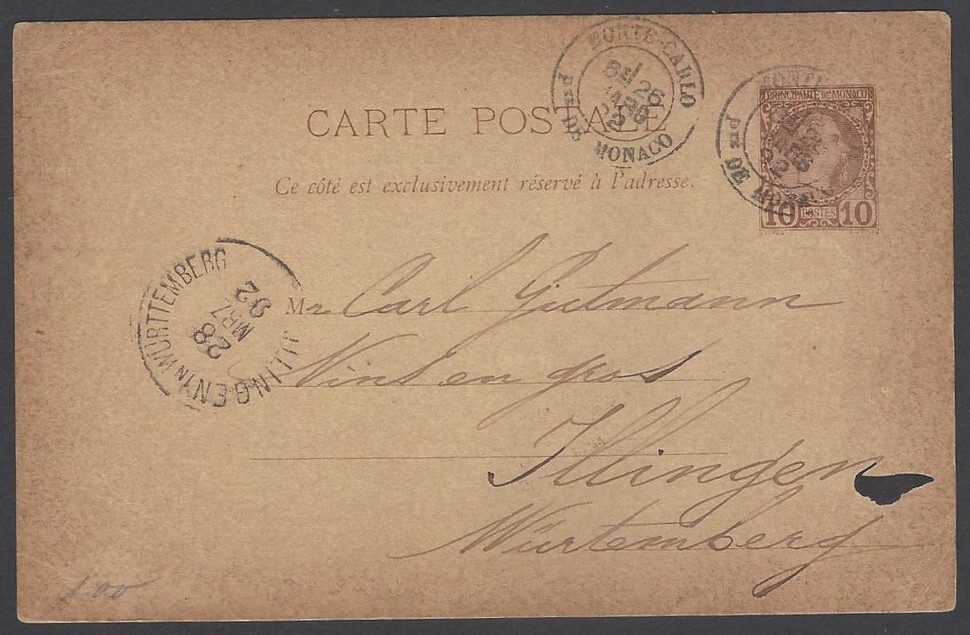 MONTE-CARLO
26
Pté DE MONACO
PRINCIPAUTÉ DE MONACO
10 POSTES 10
CARTE POSTALE
Ce côté est exclusivement réservé à l'adresse.
ILLINGEN IN WÜRTTEMBERG
28
MRZ
92
M Carl Gutmann
Vins en gros
Illingen
Würtemberg
100